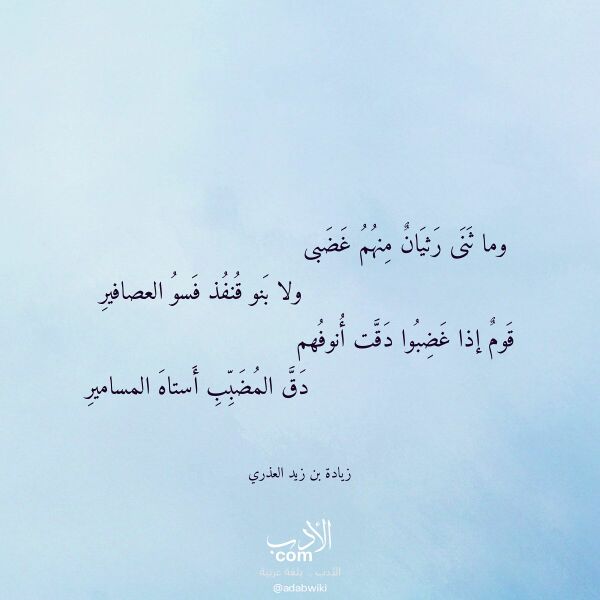 وما ثَنَى رَثيَانٌ مِنهُمُ غَضَبى
ولا بَنو قُنفُذ فَسوُ العصافيرِ
قَومٌ إذا غَضِبُوا دَقَّت أُنوفُهم
دَقَّ المُضَبِّبِ أَستاهَ المساميرِ
زيادة بن زيد العذري
الأدب
com
الأدب .. بلغة عربية
@adabwiki